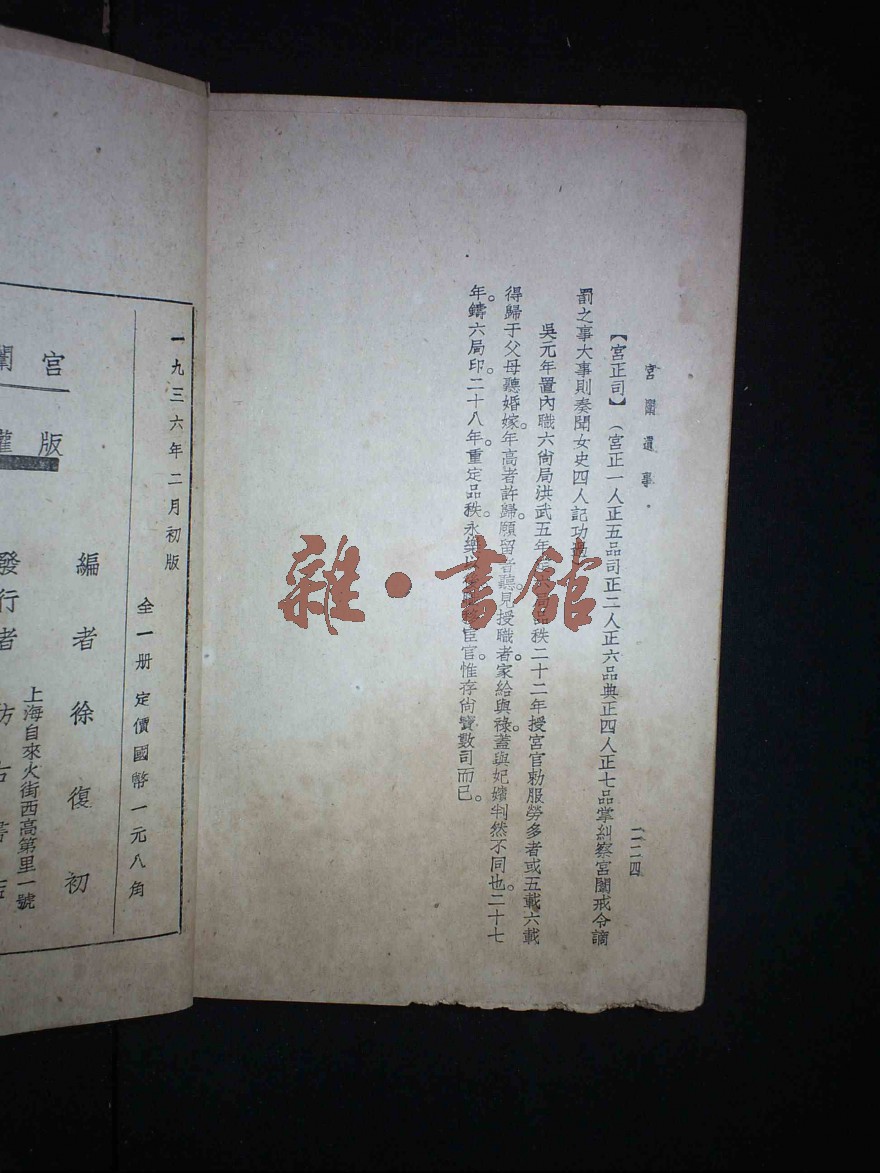 宮闈遺事
二二四
【宮正司】（宮正一人正五品司正二人正六品典正四人正七品掌糾察宮闈戒令謫
罰之事大事則奏聞女史四人記功
吳元年置內職六尙局洪武五年 品秩二十二年授宮官勅服勞多者或五載六載
得歸于父母聽婚嫁。年高者許歸願留者聽。見授職者家給與祿。蓋與妃嬪判然不同也。二十七
年。鑄六局印。二十八年。重定品秩。永樂 宦官。惟存尙寶數司而已。
雜·書館
一九三六年二月初版
全一册 定價國幣一元八角
編者徐復初
上海自來火街西高第里一號
發行者 古書店
宮闈
版權